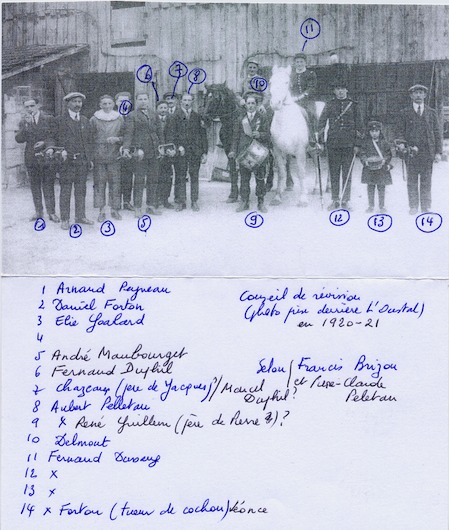 11
6
7
8
10
14
1
2
3
5
9
12
13
14
1 Arnaud Payneau
2 Daniel Forton
3 Elie
4
5 André Maubourget
6 Fernand Duphil
7 Chazeau (père de Jacques)?/Marcel Duphil?
8 Aubert Pelletau
9 x René Guillem (père de Pierre ?)?
10 Delmont
11 Fernand
12 x
13 x
14 x Forton (tueur de cochon) Léonce
Conseil de révision
(photo prise derrière L'Oustal)
en 1920-21
Selon Francis Brijou
et Pierre-Claude
Peletau